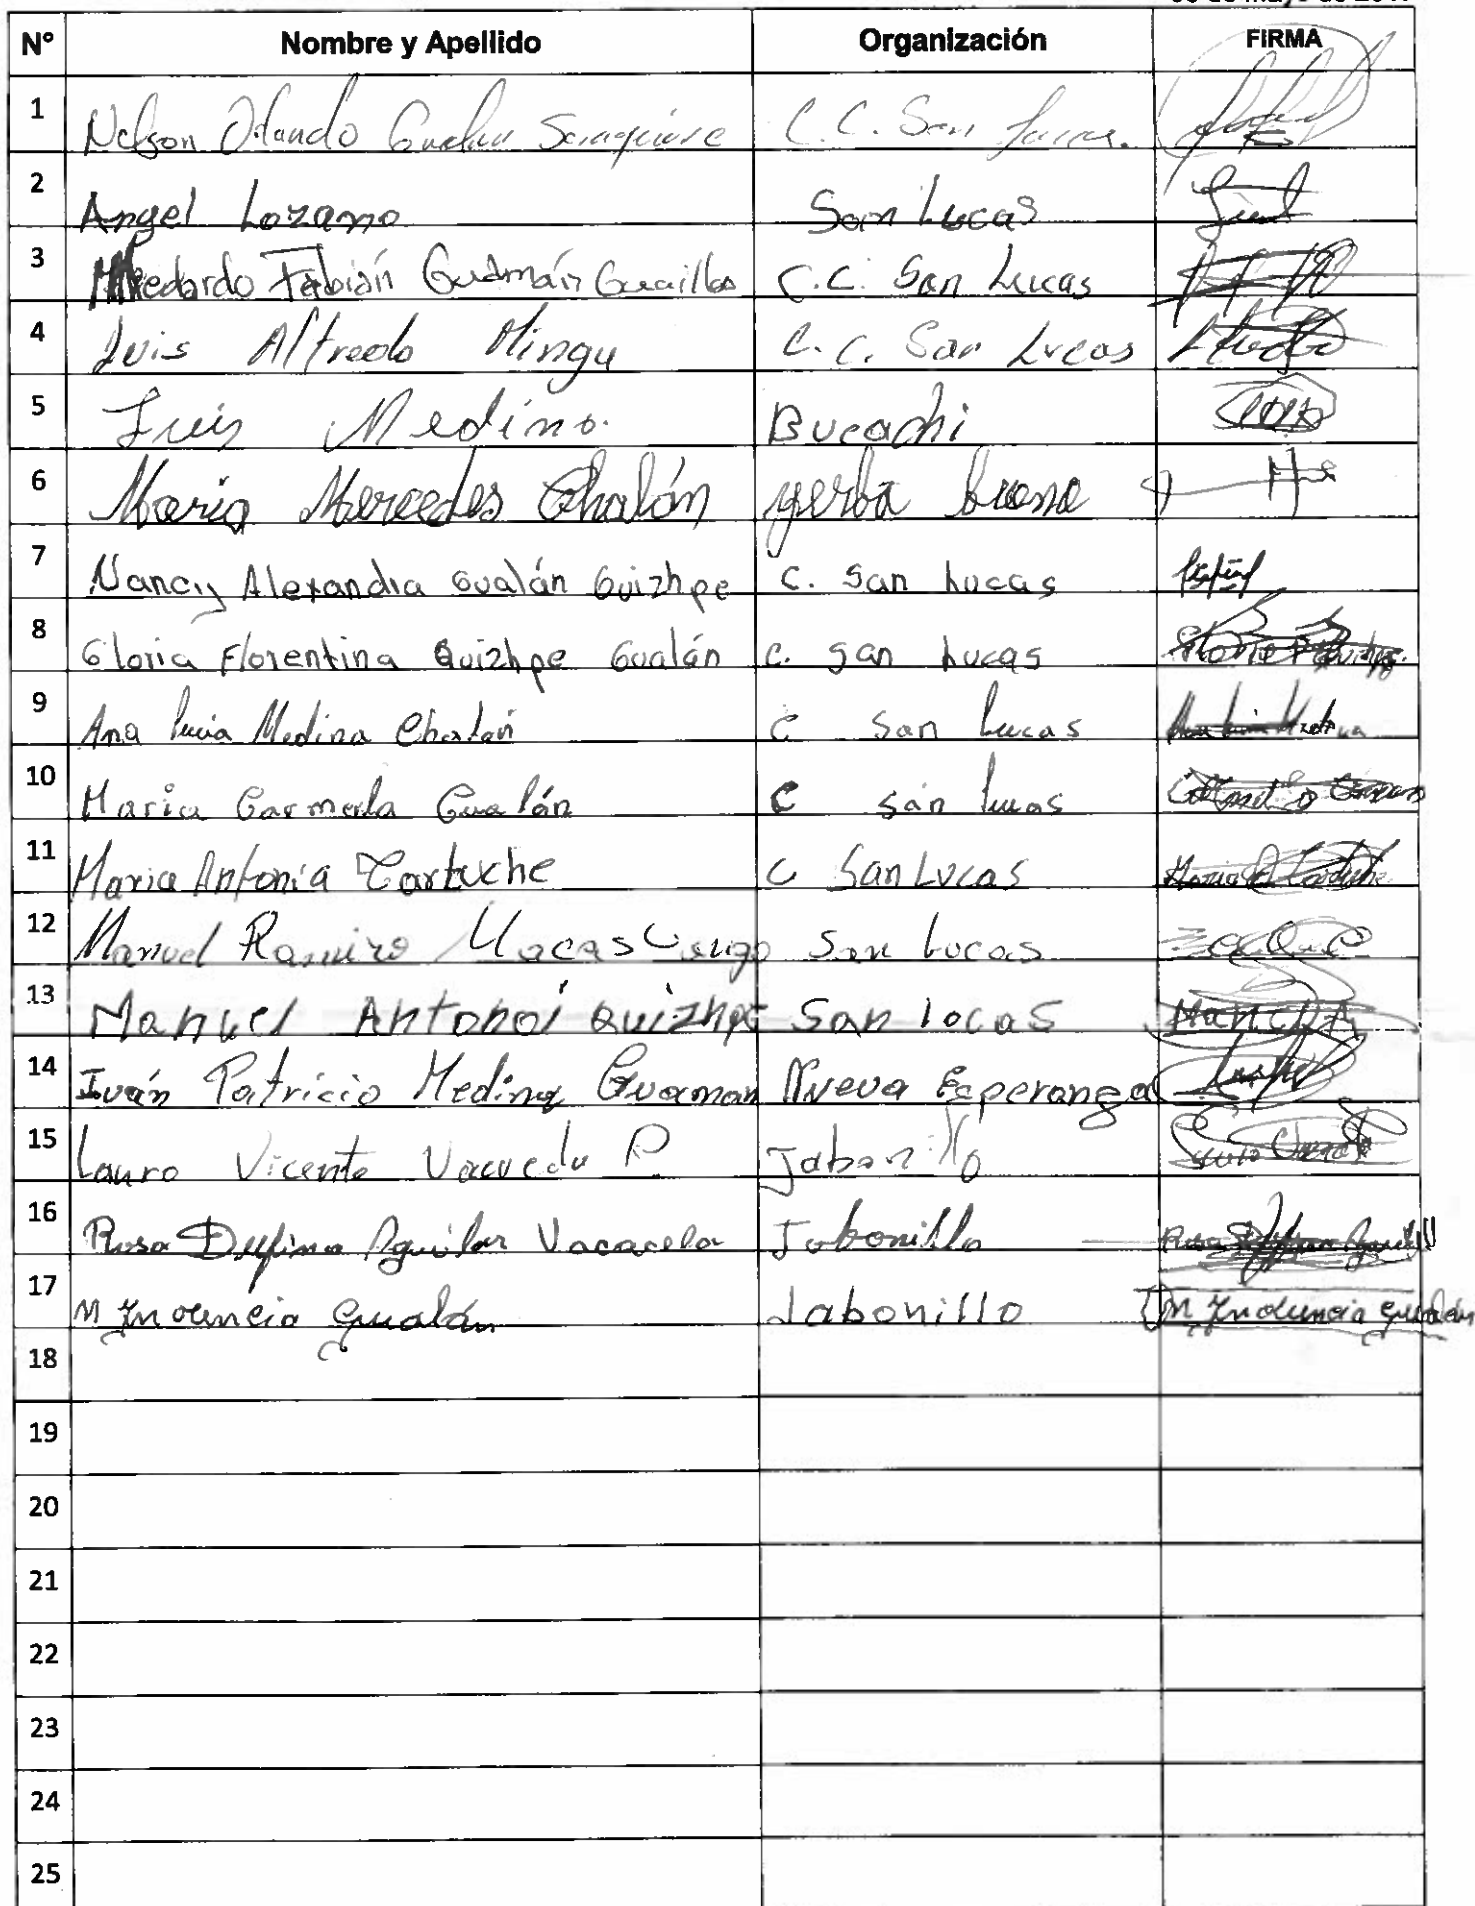 Nº Nombre y Apellido Organización FIRMA
1 Nelson Orlando C. C. San
2 Angel Lozano San Lucas
3 Medardo Fabián Guamán Guaillas C.C. San Lucas
4 Luis Alfredo Mingu C. C. San Lucas
5 Luis Medina. Bucachi
6 María Mercedes Chalán yerba buena
7 Nancy Alexandra Gualán Guizhpe C. San Lucas
8 Gloria Florentina Quizhpe Gualán C. San Lucas
9 Ana Lucia Medina Chalán C San Lucas Ana Lucia Medina
10 Maria Carmela Gualán C san lucas
11 Maria Antonia Cartuche C San Lucas Maria A Cartuche
12 Manuel Ramiro San Lucas
13 Manuel Antonoi Quizhpe San locas
14 Iván Patricio Medina Guaman Nueva Esperanza
15 Lauro Vicente P Jabonillo
16 Rosa Delfina Aguilar Vacacela Jabonillo
17 M Inocencia Gualán Jabonillo M Inocencia Gualán
18
19
20
21
22
23
24
25